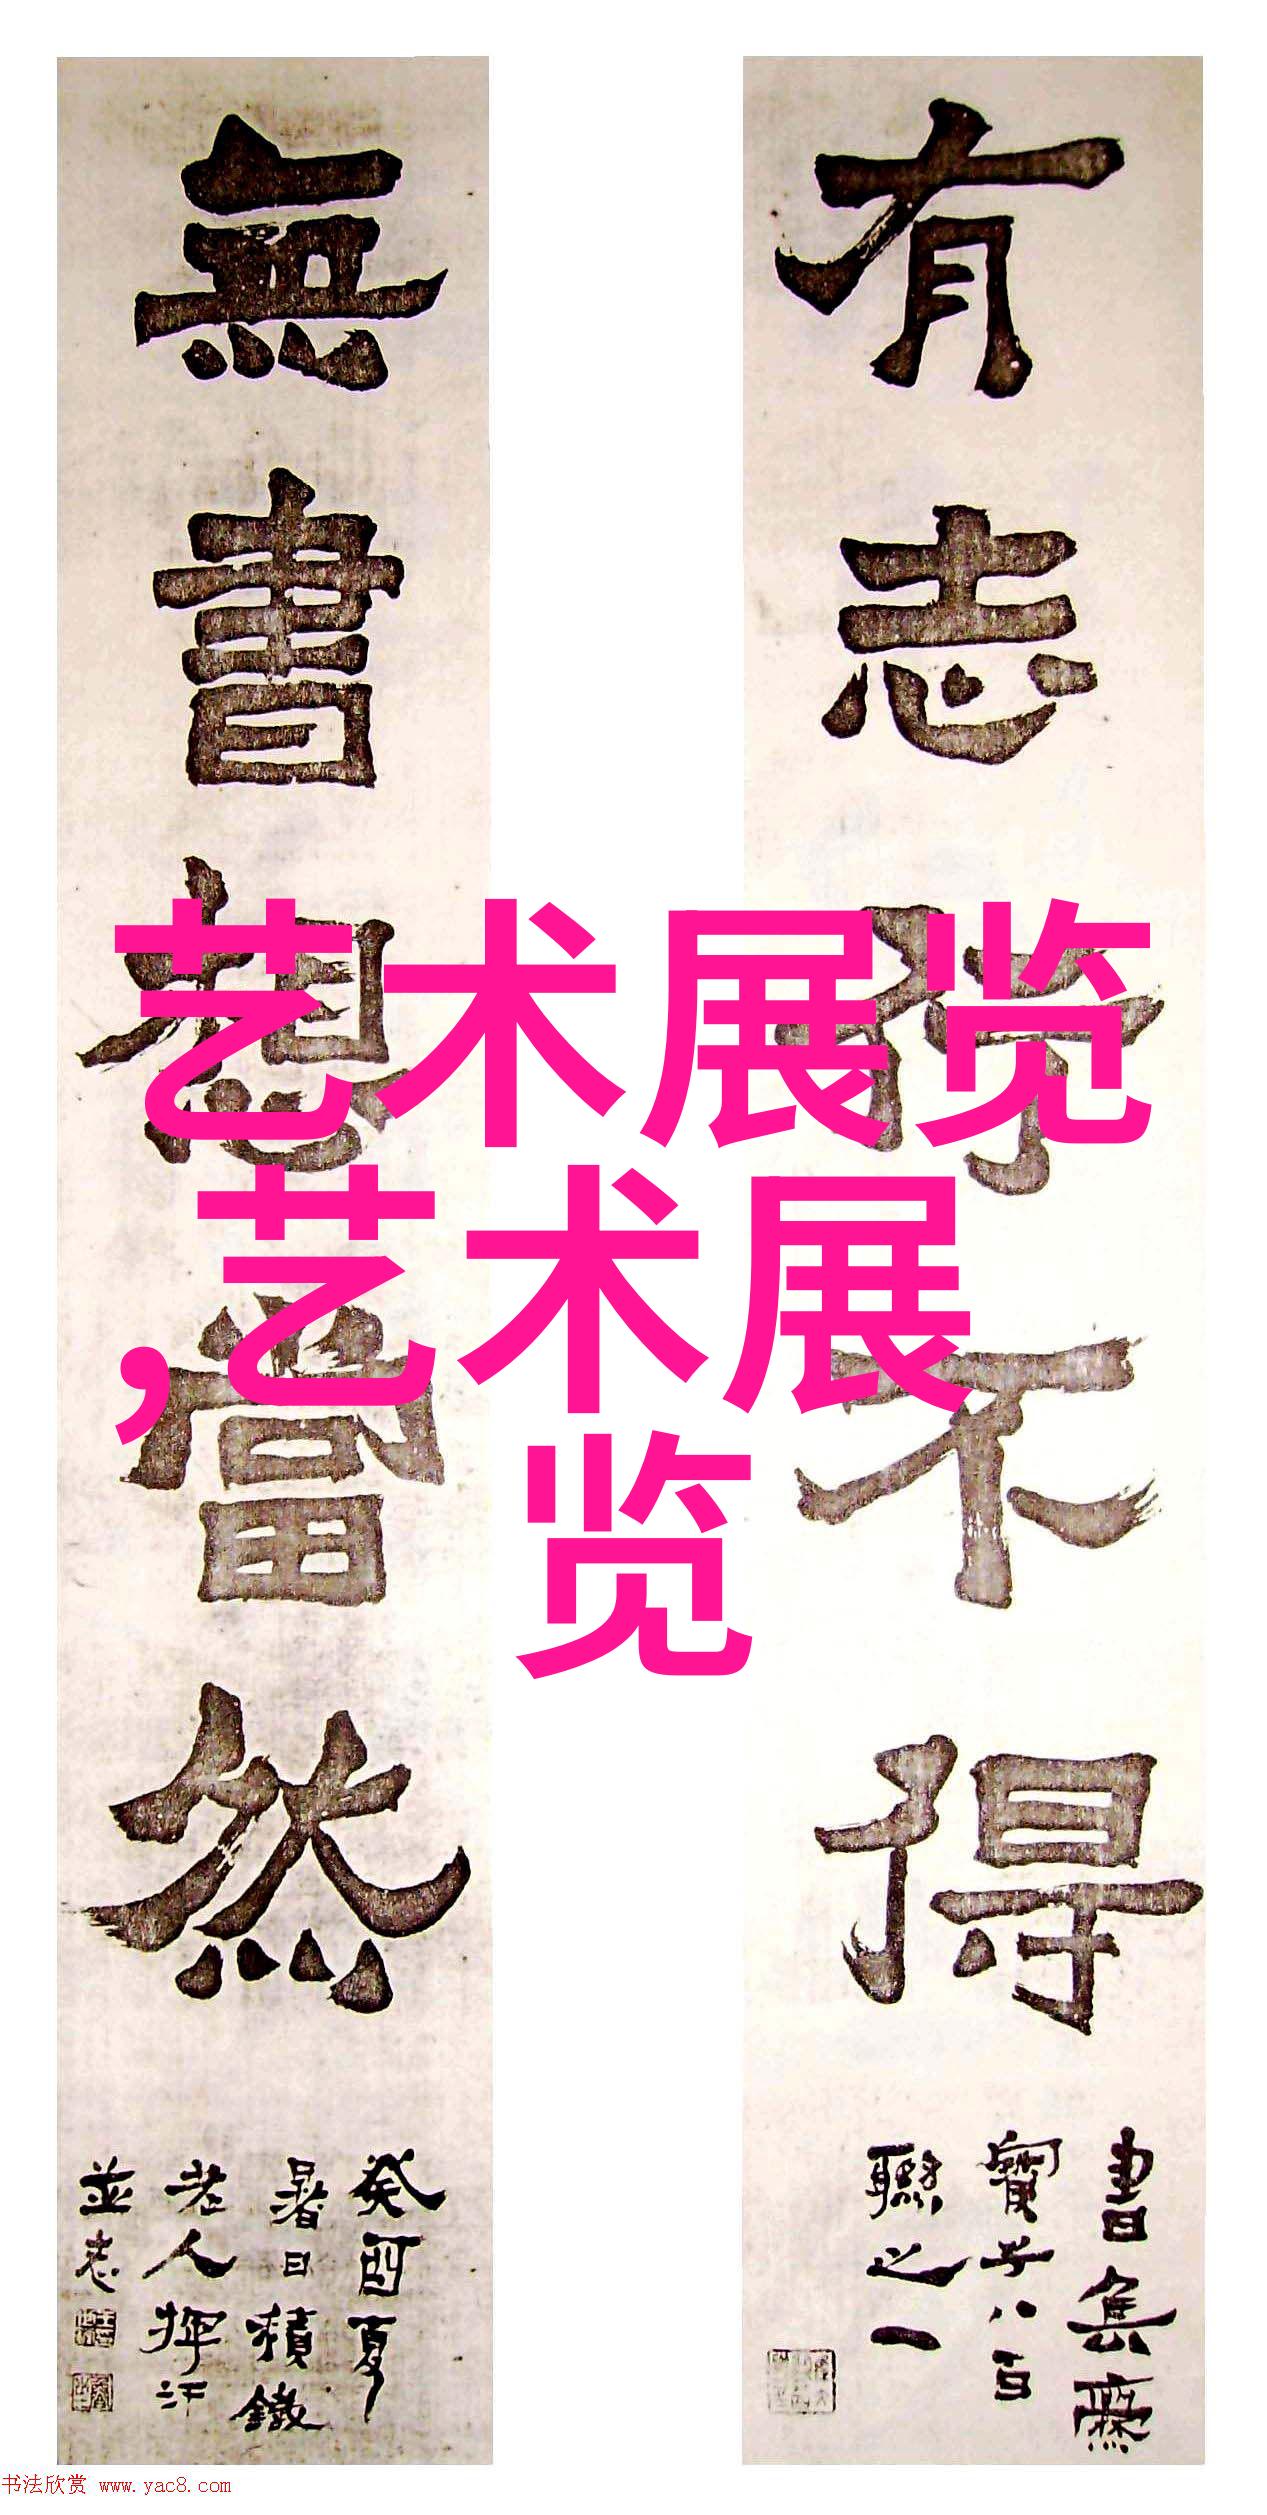 有志行不得
書集爨
寶子八百
聯之一
無書想當然
癸酉夏
暑日積鐵
老人揮汗
並志
艺术展览
,艺术展
览
书法欣赏 www.yac8.com